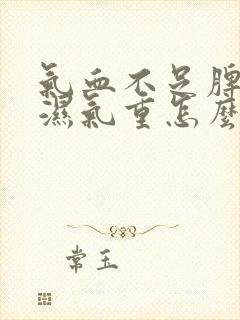 氣血不足脾
濕氣重怎麼
常玉